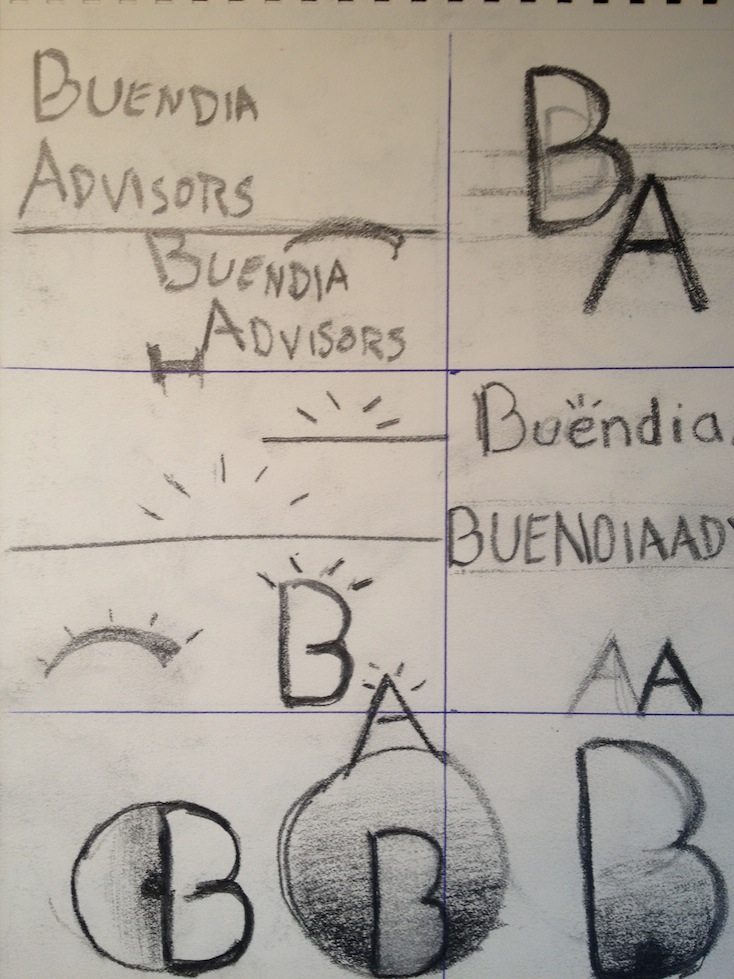 BUENDIA
ADVISORS
BUENDIA
ADVISORS
B
A
Buëndia
BUENDIAADV
B
A
AA
B
B
B